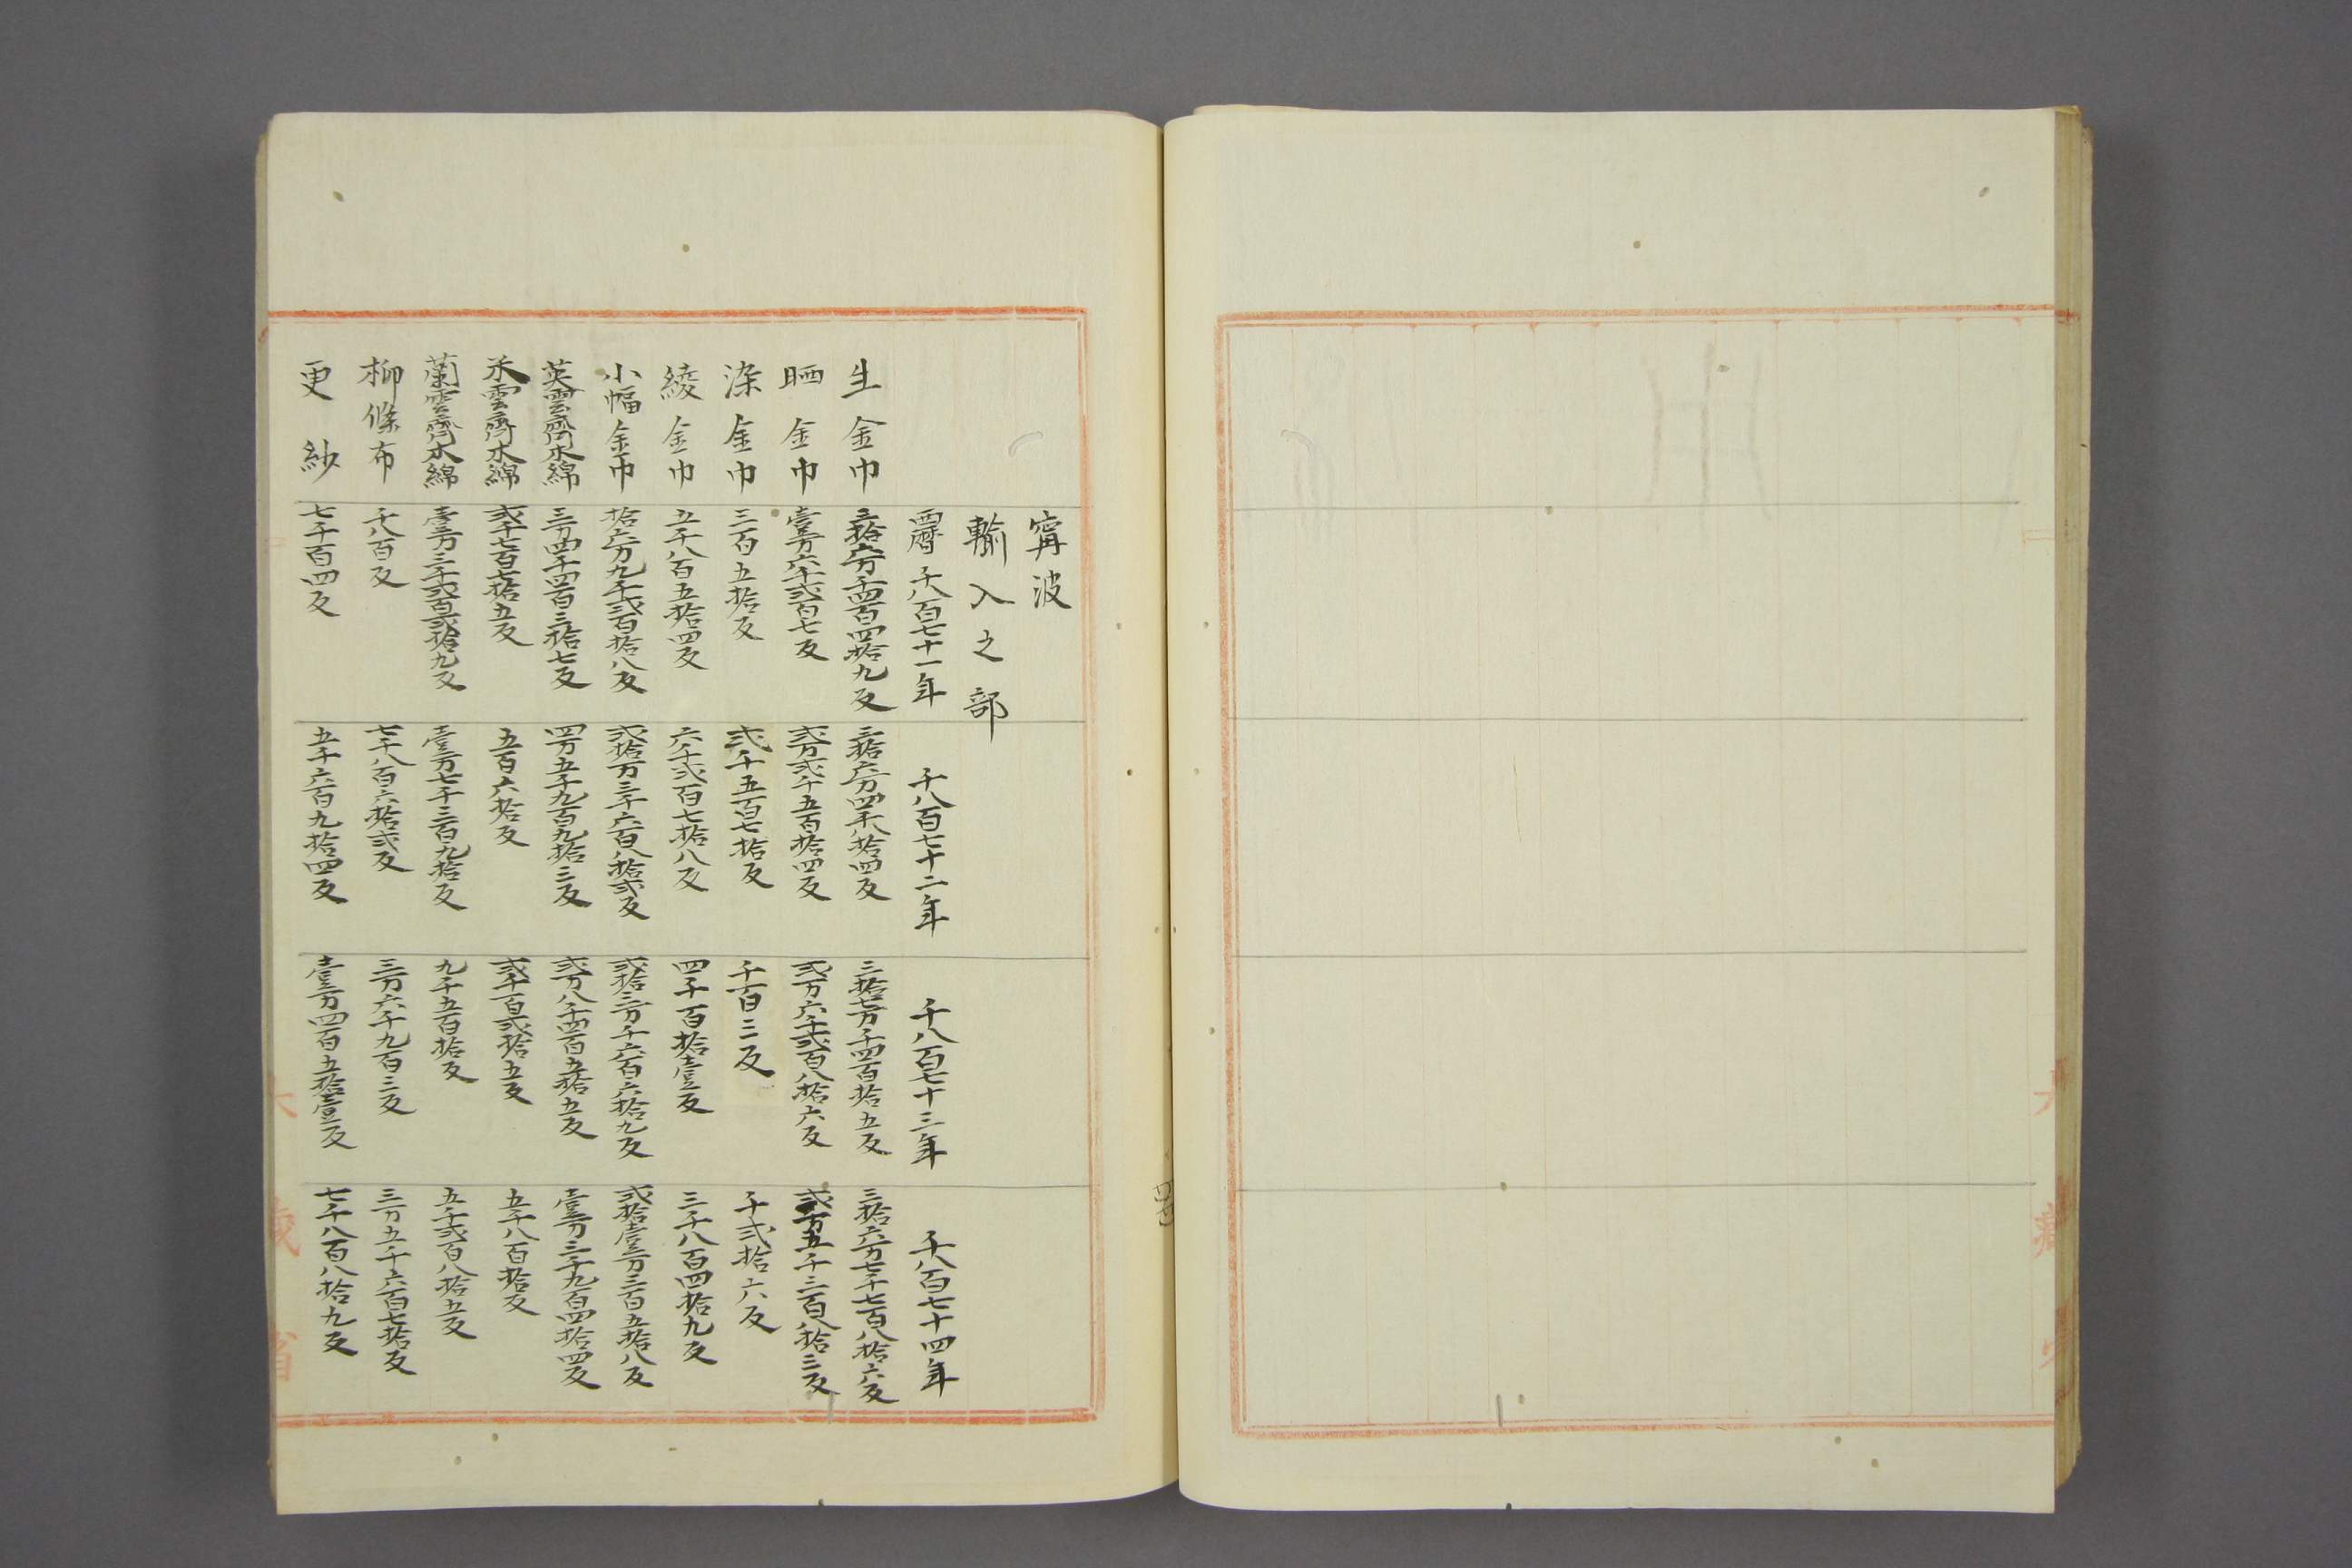 寗波
輸入之部
西暦千八百七十一年 千八百七十二年 千八百七十三年 千八百七十四年
生金巾 三拾六万千四百四拾九反 三拾六万四千八拾四反 三拾七万千四百拾五反 三拾六万七千七百八拾六反
晒金巾 壹万六千弐百七反 弐万弐千五百拾四反 弐万六千弐百八拾六反 弐万五千三百八拾三反
染金巾 三百五拾反 弐千五百七拾反 千百三反 千弐拾六反
綾金巾 五千八百五拾四反 六千弐百七拾八反 四千百拾壹反 三千八百四拾九反
小幅金巾 拾六万九千弐百拾八反 弐拾万三千六百八拾弐反 弐拾三万千六百六拾九反 弐拾壹万三百五拾八反
英雲齊木綿 三万四千四百三拾七反 四万五千九百九拾三反 弐万八千四百五拾五反 壹万三千九百四拾四反
米雲齊木綿 弐千七百七拾五反 五百六拾反 弐千百弐拾五反 五千八百拾反
蘭雲齊木綿 壹万三千弐百弐拾九反 壹万七千三百九拾反 九千五百拾反 五千弐百八拾五反
柳條布 千八百反 七千八百六拾弐反 三万六千九百三反 三万五千六百七拾反
更紗 七千百四反 五千六百九拾四反 壹万四百五拾壹反 七千八百八拾九反
大藏省